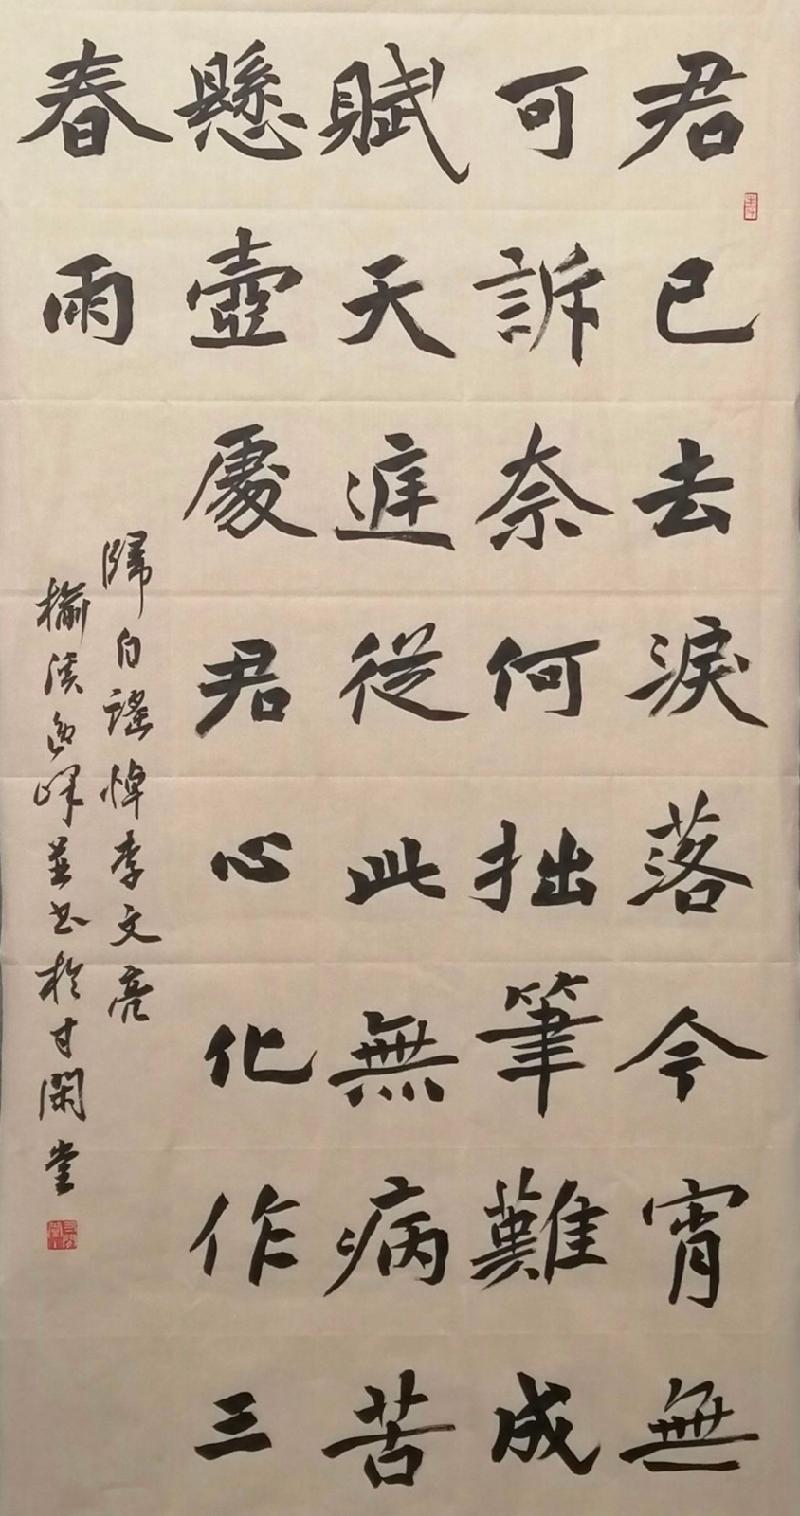 君已去淚落今宵無
可訴奈何拙筆難成
賦天遅從此無病苦
懸壺處君心化作三
春雨
歸自謠悼李文亮
榆溪逸峰並書於甘閑堂